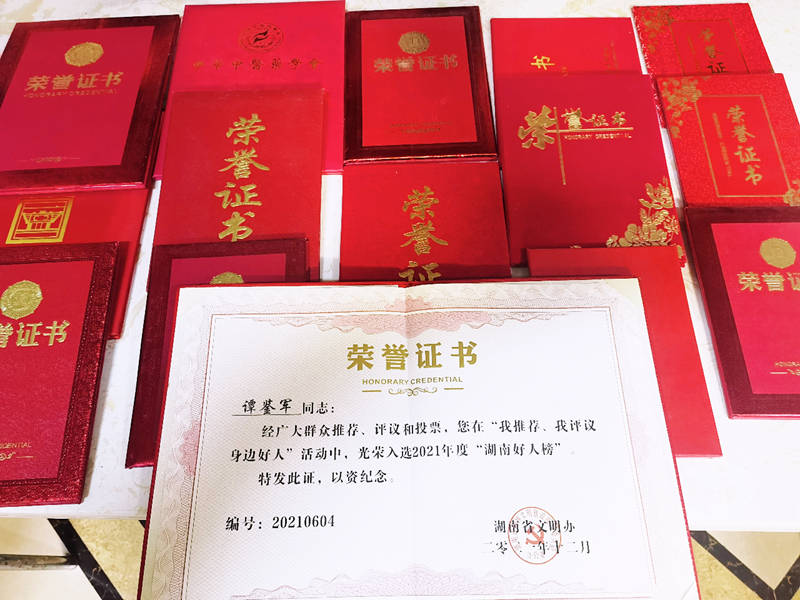 荣誉证书
HONORARY CREDENTIAL
荣誉证书
荣誉证书
荣誉证书
HONORARY CREDENTIAL
荣誉证书
荣誉证
荣誉证书
荣誉证书
荣誉证书
HONORARY CREDENTIAL
谭鉴军同志：
经广大群众推荐、评议和投票，您在“我推荐、我评议
身边好人”活动中，光荣入选2021年度“湖南好人榜”。
特发此证，以资纪念。
编号：20210604
湖南省文明办
二〇二一年十二月